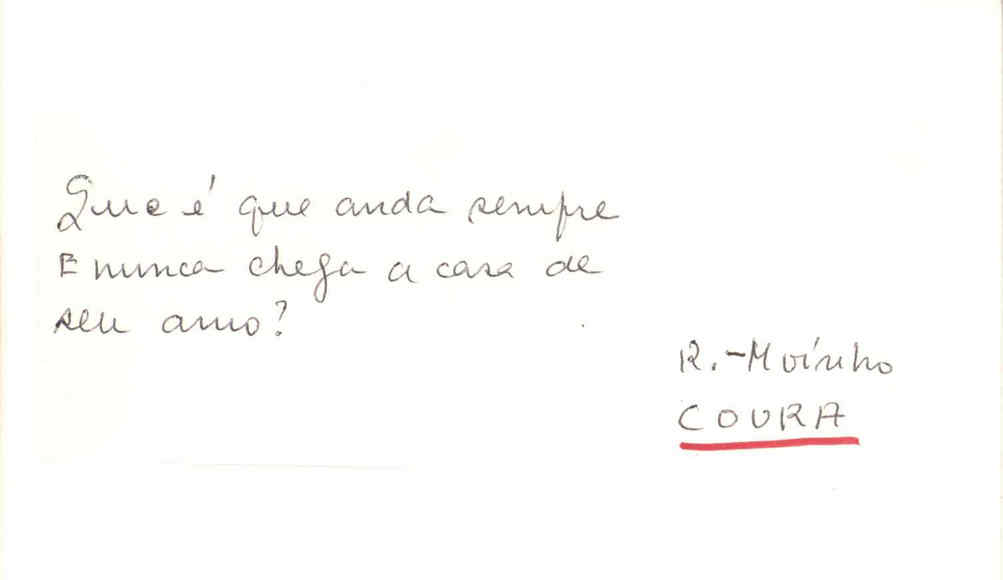 Que é que anda sempre
E nunca chega a casa de
seu amo?
R.-Moínho
COURA